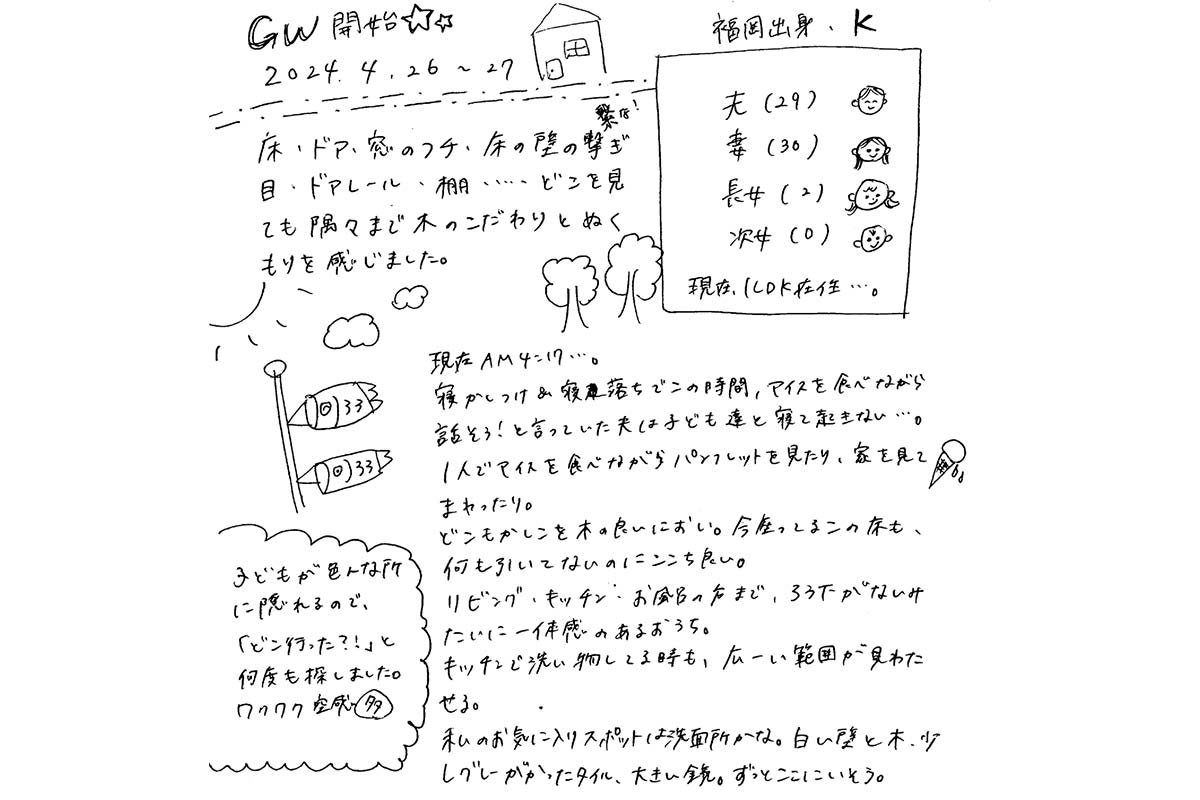 GW 開始☆☆
2024.4.26～27
福岡出身、K
夫（29）
妻（30）
長女（2）
次女（0）
現在、1LDK在住…。
繋な！
床・ドア・窓のフチ・床の壁の撃ぎ
目・ドアレール・棚・‥‥どこを見
ても隅々まで木のこだわりとぬく
もりを感じました。
現在AM4:17…。
寝かしつけ&寝落ちでこの時間、アイスを食べながら
話そう！と言っていた夫は子ども達と寝て起きない…。
1人でアイスを食べながらパンフレットを見たり、家を見て
まわったり。
どこもかしこを木の良いにおい。今座ってるこの床も、
何も引いてないのにここち良い。
リビング・キッチン・お風呂の方まで、ろうかがないみ
たいに一体感のあるおうち。
キッチンで洗い物してる時も、広ーい範囲が見わた
せる。
私のお気に入りスポットは洗面所かな。白い壁と木、少
しグレーがかったタイル、大きい鏡。ずっとここにいそう。
子どもが色んな所
に隠れるので、
「どこ行った？！」と
何度も探しました。
ワクワク空感多